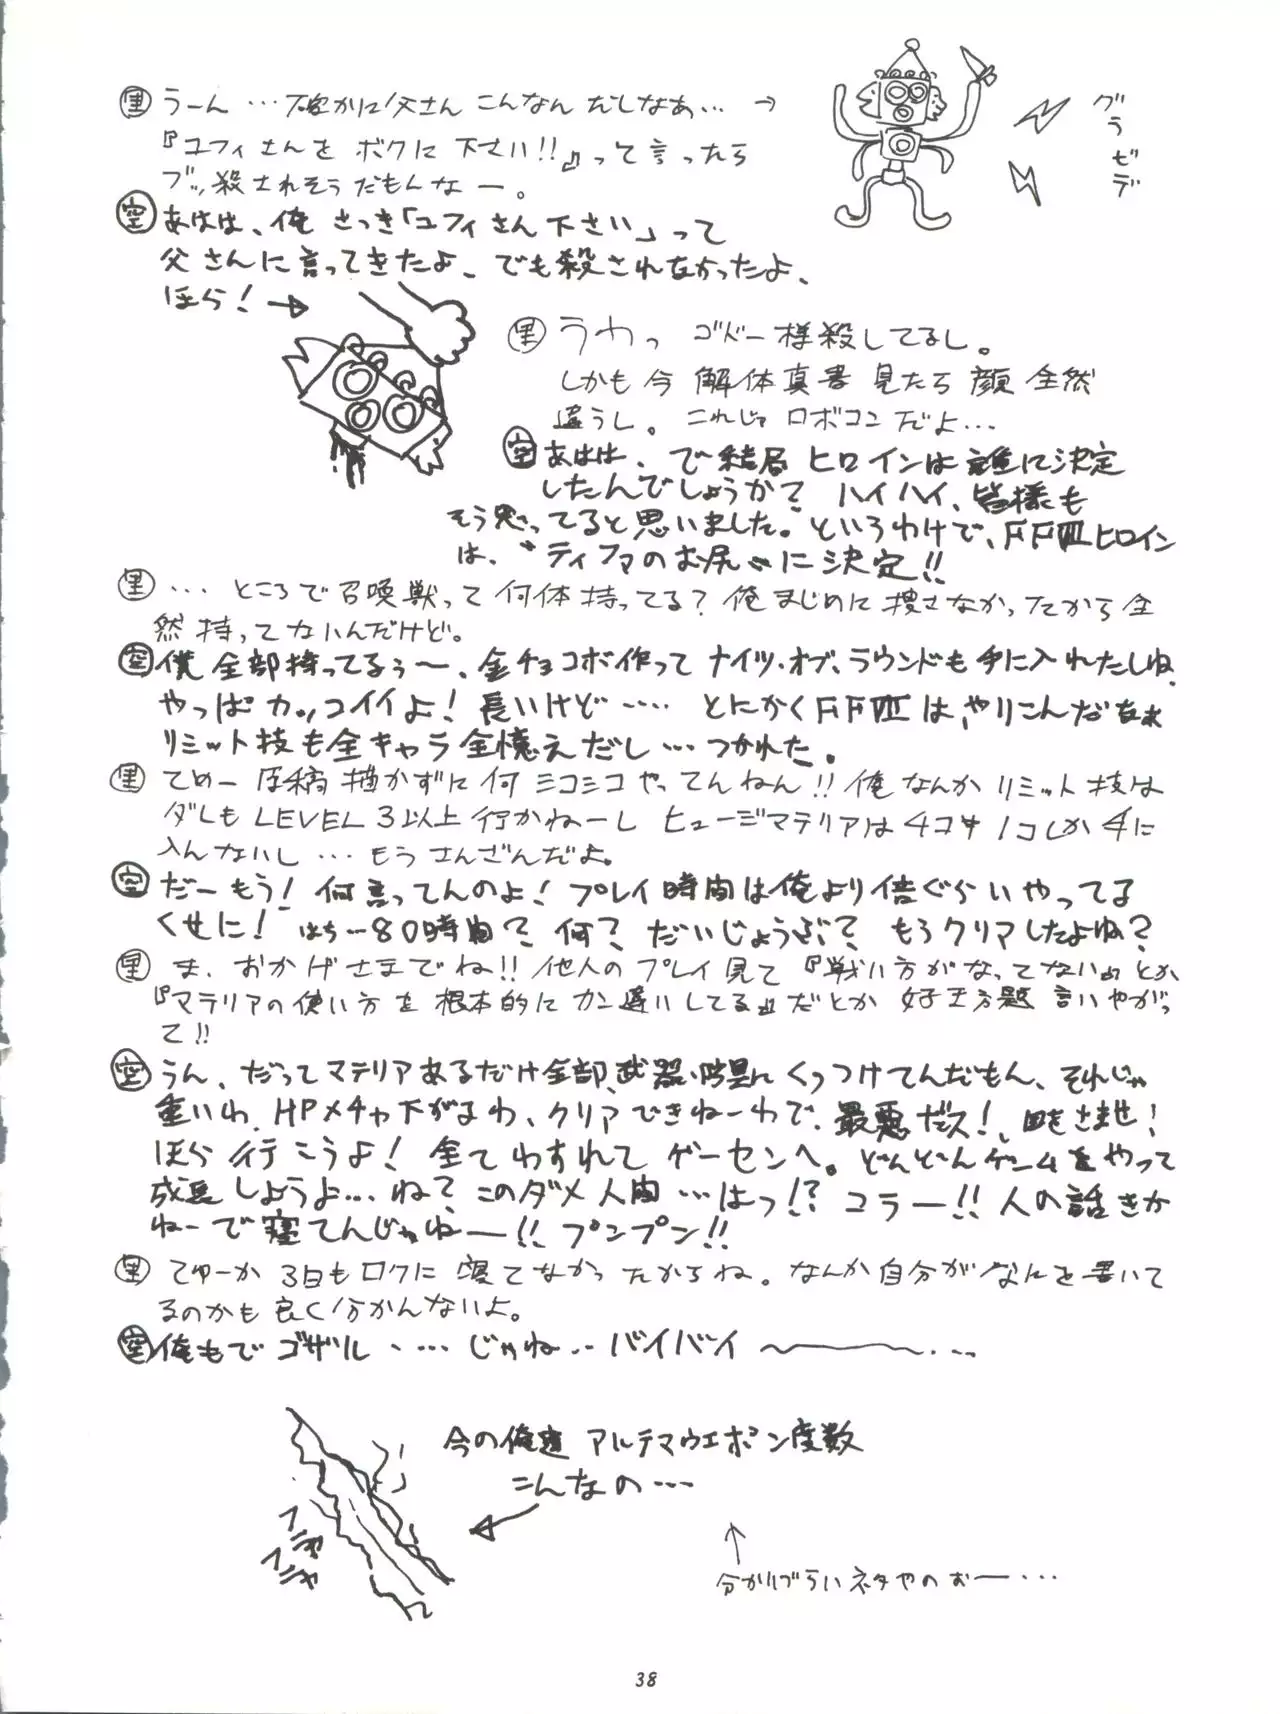 里 うーん…確かに父さん こんなんだしなあ… →
『ユフィさんを ボクに 下さい!!』って言ったら
ブッ殺されそうだもんなー。
グラビデ
空 あはは、俺 さっき「ユフィさん下さい」って
父さんに言ってきたよ、でも殺されなかったよ、
ほら! →
里 うわっ ゴドー様殺してるし。
しかも今 解体真書 見たら 顔 全然
違うし。これじゃ ロボコンだよ…
空 あはは、で結局 ヒロインは誰に決定
したんでしょうか? ハイハイ、皆様も
そう思ってると思いました。というわけで、FFⅦヒロイン
は、"ティファのお尻"に決定!!
里 … ところで召喚獣って何体持ってる?俺まじめに捜さなかったから全
然持ってないんだけど。
空 僕全部持ってるぅ〜、金チョコボ作ってナイツ・オブ・ラウンドも手に入れたしね、
やっぱカッコイイよ!長いけど…… とにかくFFⅦは、やりこんだなぁ
リミット技も全キャラ全憶えだし…つかれた。
里 てめー原稿描かずに何ミコミコやってんねん!!俺なんかリミット技は
ダレもLEVEL3以上行かねーし ヒュージマテリアは4コ中1コしか手に
入んないし…もうさんざんだよ。
空 だーもう!何言ってんのよ!プレイ時間は俺より倍ぐらいやってる
くせに! はち…80時間?何?だいじょうぶ?もうクリアしたよね?
里 ま、おかげさまでね!!他人のプレイ見て『戦い方がなってない』とか
『マテリアの使い方を根本的にカン違いしてる』だとか 好き放題 言いやがっ
て!!
空 うん、だってマテリアあるだけ全部、武器・防具にくっつけてんだもん、それじゃ
重いわ、HPメチャ下がるわ、クリアできねーわで、最悪だス!、目をさませ!
ほら行こうよ!全てわすれてゲーセンへ。どんどんゲームをやって
成長しようよ…ね?このダメ人間…はっ!?コラー!!人の話きか
ねーで寝てんじゃねー!!プンプン!!
里 てゆーか 3日もロクに寝てなかったからね。なんか自分がなにを書いて
るのかも良く分かんないよ。
空 俺もでゴザル・…じゃね‥バイバイ〜――〜.…
今の俺達 アルテマウエポン度数
こんなの…
フニャ
フニャ
分かりづらいネタやのおー…
38